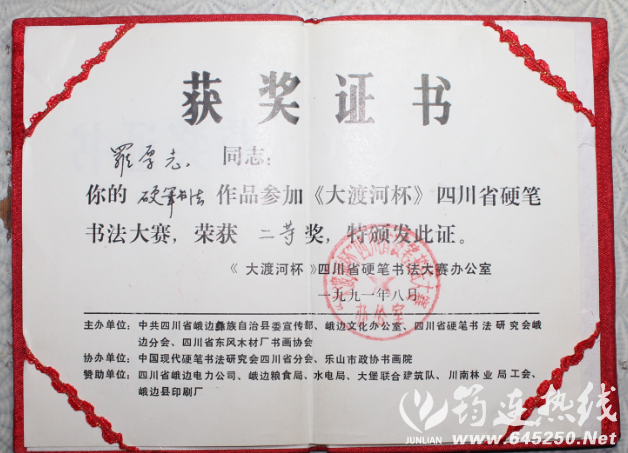 获奖证书
羅厚志 同志：
你的 硬笔书法 作品参加《大渡河杯》四川省硬笔
书法大赛，荣获 二等 奖，特颁发此证。
《大渡河杯》四川省硬笔书法大赛办公室
一九九一年八月
办公室
主办单位：中共四川省峨边彝族自治县委宣传部、峨边文化办公室、四川省硬笔书法研究会峨
边分会、四川省东风木材厂书画协会
协办单位：中国现代硬笔书法研究会四川省分会、乐山市政协书画院
赞助单位：四川省峨边电力公司、峨边粮食局、水电局、大堡联合建筑队、川南林业局工会、
峨边县印刷厂
筠连热线
JUNLIAN www.645250.Net